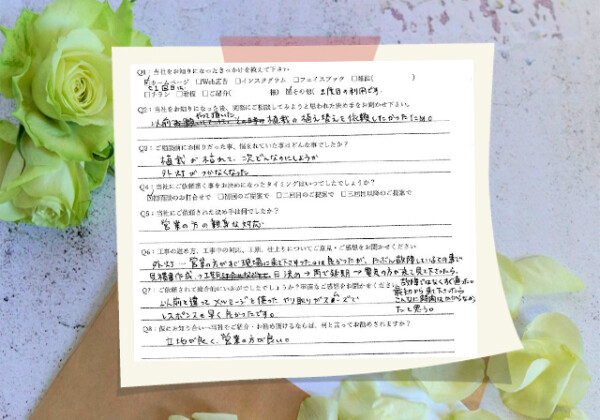 Q1：当社をお知りになったきっかけを教えて下さい
☑ホームページ □Web広告 □インスタグラム □フェイスブック □雑誌( )
□チラシ □看板 □ご紹介( 様) ☑その他( 2度目の利用です。
Q2：当社をお知りになった後、実際にご相談してみようと思われた決め手をお聞かせ下さい。
やって頂いた
以前 植栽の植え替えを依頼したかったため。
Q3：ご相談前にお困りだった事、悩まれていた事はどんな事でしたか？
植栽が枯れて、次どんなのにしようか
外灯がつかなくなった
Q4：当社にご依頼頂く事をお決めになったタイミングはいつでしたでしょうか？
☑初回のお打合せで □初回のご提案で □二回目のご提案で □三回目以降のご提案で
Q5：当社にご依頼された決め手は何でしたか？
営業の方の親身な対応。
Q6：工事の進め方、工事中の対応、工期、仕上りについてご意見・ご感想をお聞かせください
外灯→営業の方がすぐ現場に来て下さったのは良かったが、たぶん故障しているとの事で
見積書作成、工期 日決め→雨で延期→電気の方が来て見て下さったら、
故障ではなく すぐ直った。
Q7：ご依頼されて総合的にいかがでしたでしょうか？率直なご感想をお聞かせください
最初から来て下さったら
以前と違ってメッセージを使ったやり取りがスムーズで
こんなに時間はかからなかっ
レスポンスも早く良かったです。
たと思う。
Q8：仮にお知り合いへ当社をご紹介・お勧め頂けるならば、何と言ってお勧めされますか？
立地が良く、営業の方が良い。